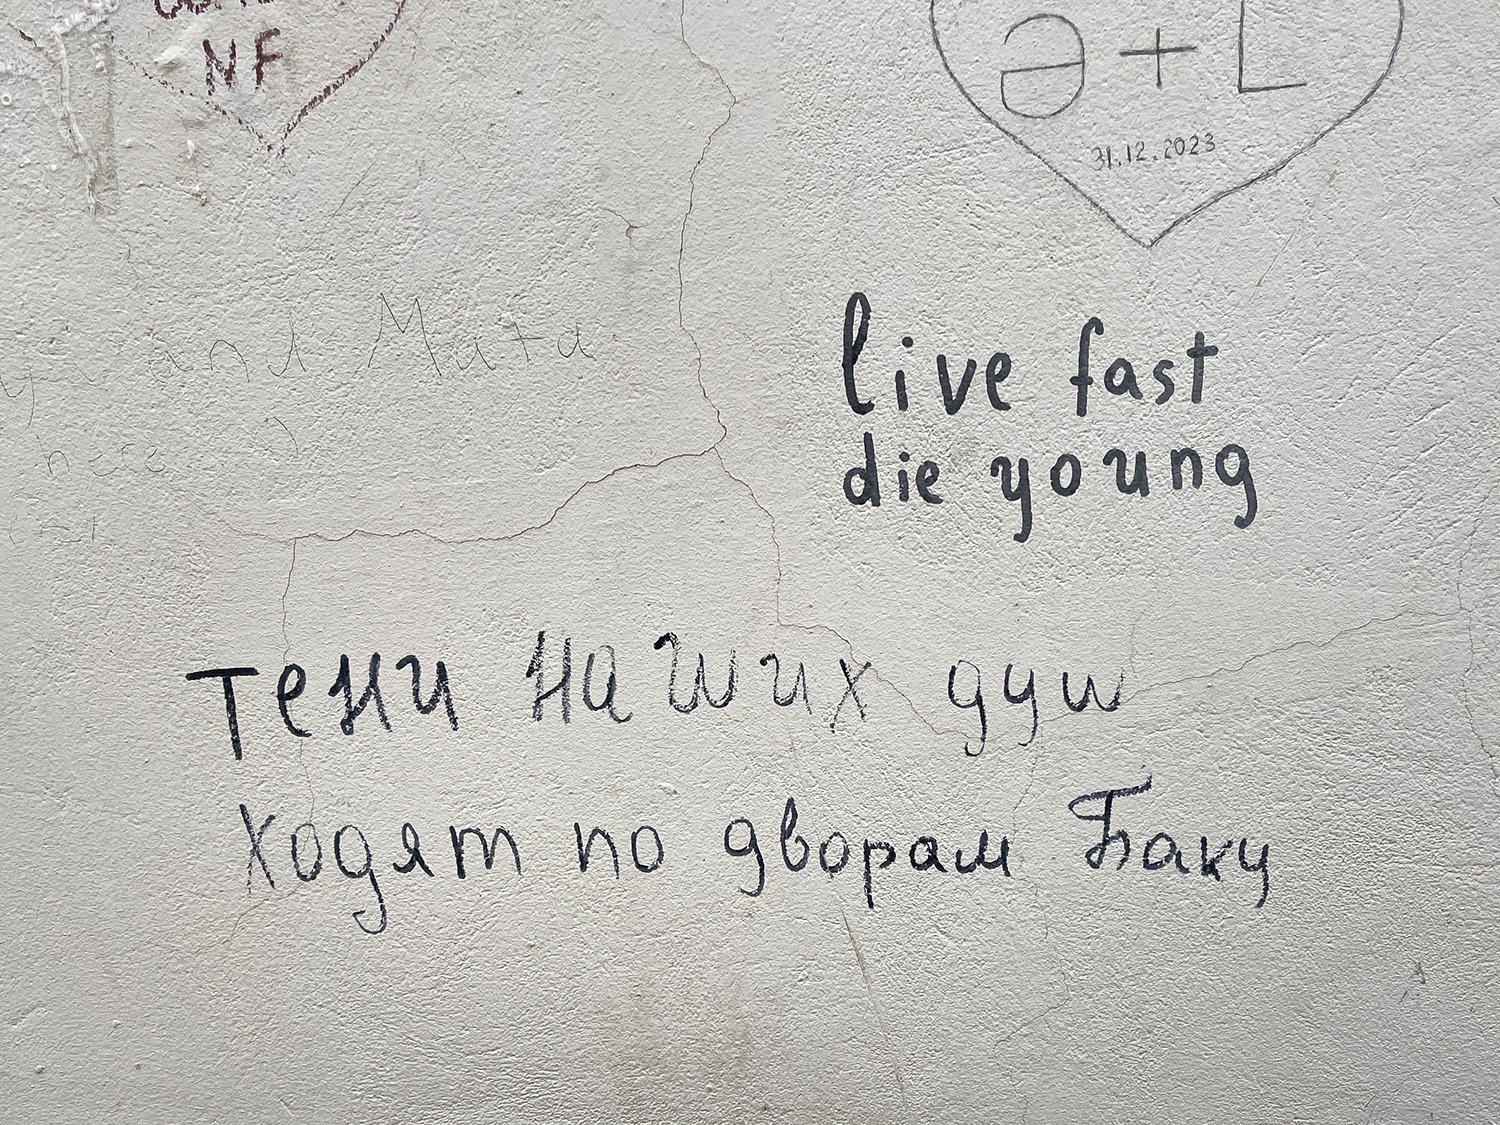 NF
Ə + L
31.12.2023
live fast
die young
тени наших душ
ходят по дворам Баку